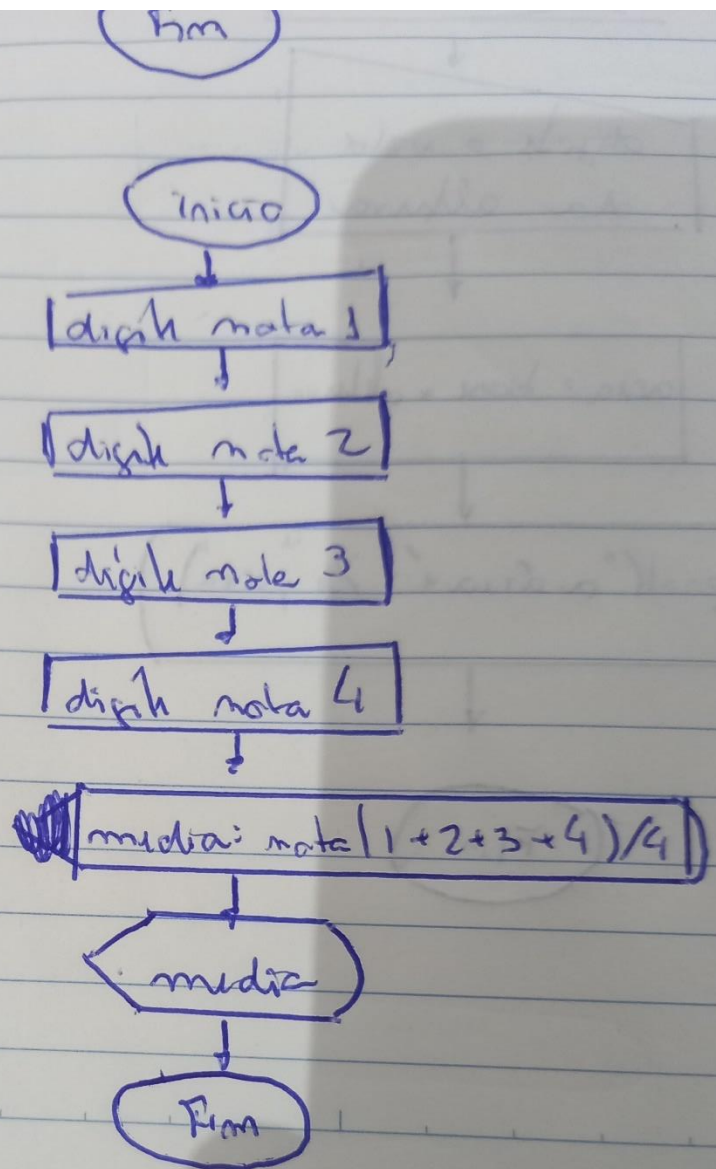 Fim
inicio
digite nota 1
digite nota 2
digite nota 3
digite nota 4
media: nota (1+2+3+4)/4
media
Fim